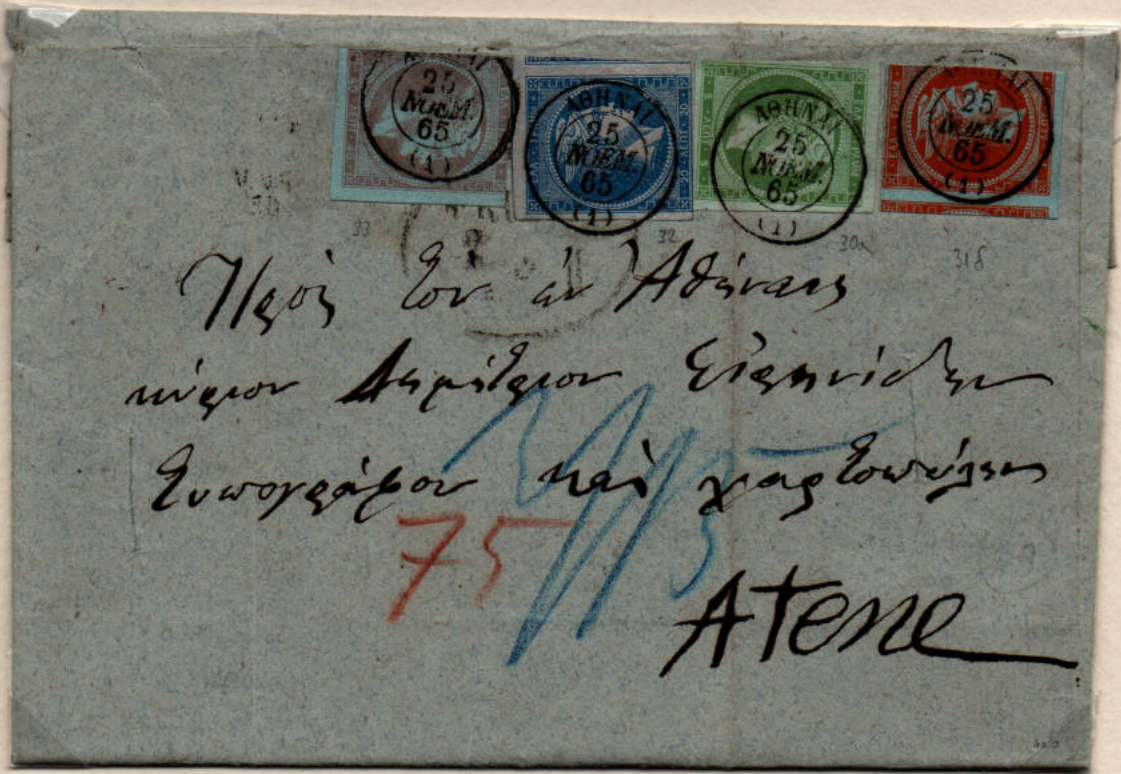 ΑΘΗΝΑΙ 25 ΝΟΕΜ. 65 (1)
ΑΘΗΝΑΙ 25 ΝΟΕΜ. 65 (1)
ΑΘΗΝΑΙ 25 ΝΟΕΜ. 65 (1)
ΑΘΗΝΑΙ 25 ΝΟΕΜ. 65 (1)
33 32 30a 31δ
Πρὸς τὸν ἐν Ἀθήναις
κύριον Δημήτριον Εἰρηνίδην
τυπογράφον καὶ χαρτοπώλην
75
Atene